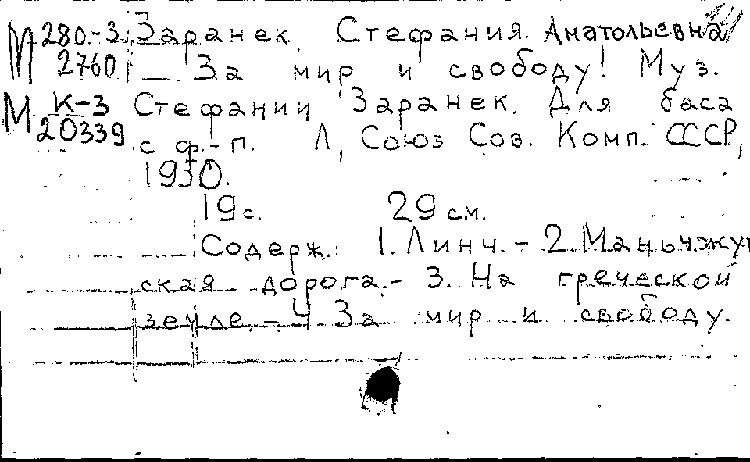 М 280-3 Заранек, Стефания Анатольевна
2760 — За мир и свободу! Муз.
М К-3 Стефании Заранек. Для баса
20339 с ф.-п. Л, Союз Сов. Комп. СССР,
1950.
19 с. 29 см.
Содерж.: 1. Линч. - 2. Маньчжу
ская дорога. - 3. На греческой
земле. - 4. За мир и свободу.